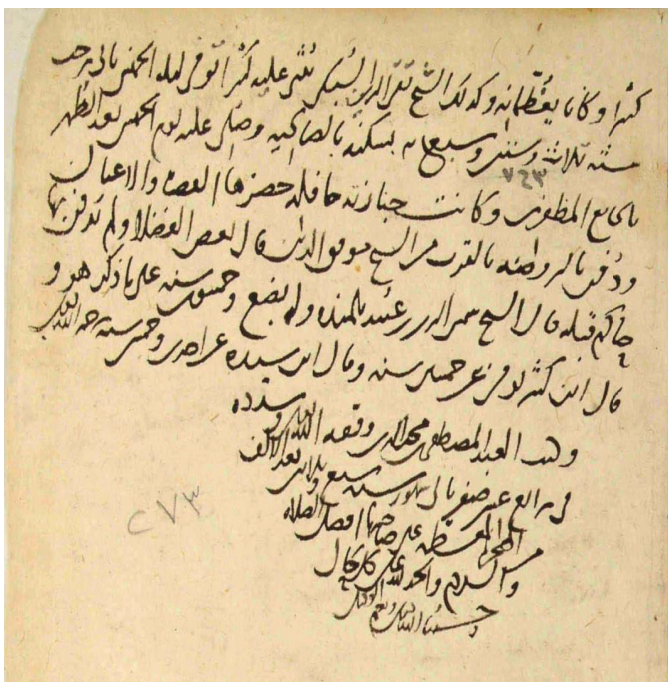 كثيرا وكانا يعظمانه وكذلك الشيخ تقي الدين السبكي يثني عليه كثيرا توفي ليلة الخميس ثاني رجب
سنة ثلاث وستين وسبعمايه بسكنه بالصالحية وصلي عليه يوم الخميس بعد الظهر
٧٦٣
بالجامع المظفري وكانت جنازته حافلة حضرها القضاة والاعيان
ودفن بالروضة بالقرب من الشيخ موفق الدين قال بعض الفضلا ولم يدفن بها
حاكم قبله قال الشيخ وله بضع وخمسون سنة على ما ذكر هو و
قال ابن كثير توفي عن خمسين سنة وقال ابن سنده عن احدى وخمسين سنة رحمه الله تعالى
وكتب العبد المصطفى محب الدين وفقه الله وسدده
في رابع عشر صفر سنة سبع وثلاثين بعد الالف
الهجرة على صاحبها افضل الصلاة
والسلام والحمد لله على كل حال
وحسبنا الله ونعم الوكيل
٢٧٣